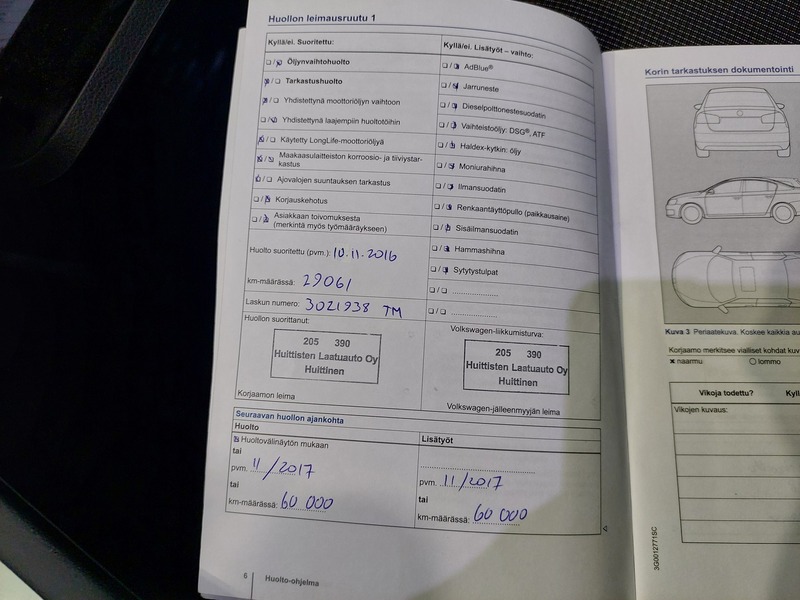 Huollon leimausruutu 1
Kyllä/ei. Suoritettu:
Öljynvaihtohuolto
Tarkastushuolto
Yhdistettynä moottoriöljyn vaihtoon
Yhdistettynä laajempiin huoltotöihin
Käytetty LongLife-moottoriöljyä
Maakaasulaitteiston korroosio- ja tiiviystar-
kastus
Ajovalojen suuntauksen tarkastus
Korjauskehotus
Asiakkaan toivomuksesta
(merkintä myös työmääräykseen)
Huolto suoritettu (pvm.): 10.11.2016
km-määrässä: 29061
Laskun numero: 3021938 TM
Huollon suorittanut:
205 390
Huittisten Laatuauto Oy
Huittinen
Korjaamon leima
Kyllä/ei. Lisätyöt – vaihto:
AdBlue®
Jarruneste
Dieselpolttonestesuodatin
Vaihteistoöljy: DSG®, ATF
Haldex-kytkin: öljy
Moniurahihna
Ilmansuodatin
Renkaantäyttöpullo (paikkausaine)
Sisäilmansuodatin
Hammashihna
Sytytystulpat
Volkswagen-liikkumisturva:
205 390
Huittisten Laatuauto Oy
Huittinen
Volkswagen-jälleenmyyjän leima
Seuraavan huollon ajankohta
Huolto
Huoltovälinäytön mukaan
tai
pvm. 11/2017
tai
km-määrässä: 60 000
Lisätyöt
pvm. 11/2017
tai
km-määrässä: 60 000
6 Huolto-ohjelma
Korin tarkastuksen dokumentointi
Kuva 3 Periaatekuva. Koskee kaikkia
Korjaamo merkitsee vialliset kohdat
naarmu lommo
Vikoja todettu?
Vikojen kuvaus:
3G0012771SC